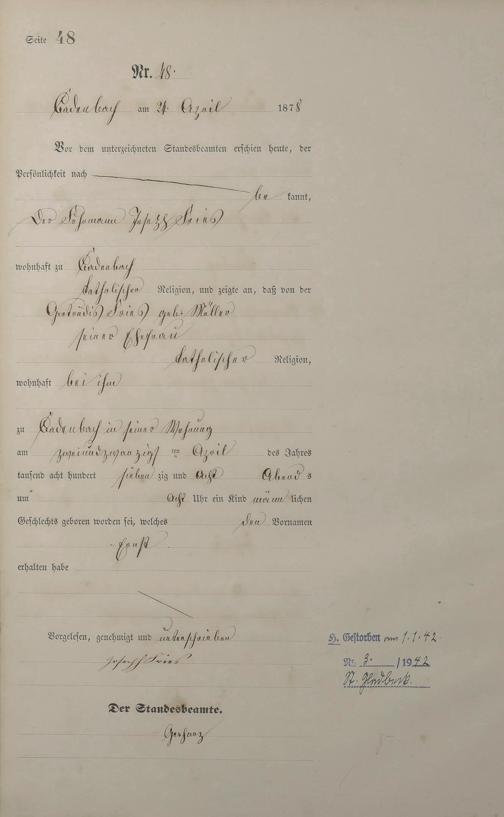 Seite 48
Nr. 48.
Cadenbach am 24 April 1878
Vor dem unterzeichneten Standesbeamten erschien heute, der
Persönlichkeit nach
be kannt,
Der Joseph Fries
wohnhaft zu Cadenbach
katholischer Religion, und zeigte an, daß von der
Gertrudis Fries geb: Müller
seiner Ehefrau
katholischer Religion,
wohnhaft bei ihm
zu Cadenbach in seiner Wohnung
am zweiundzwanzigsten April des Jahres
tausend acht hundert sieben zig und acht Abends
um Acht Uhr ein Kind männlichen
Geschlechts geboren worden sei, welches den Vornamen
Ernst
erhalten habe
Vorgelesen, genehmigt und unterschrieben
Joseph Fries
H. Gestorben am 1.1.42.
Nr. 3. /1942
St. Gladbeck
Der Standesbeamte.
Gerhanz